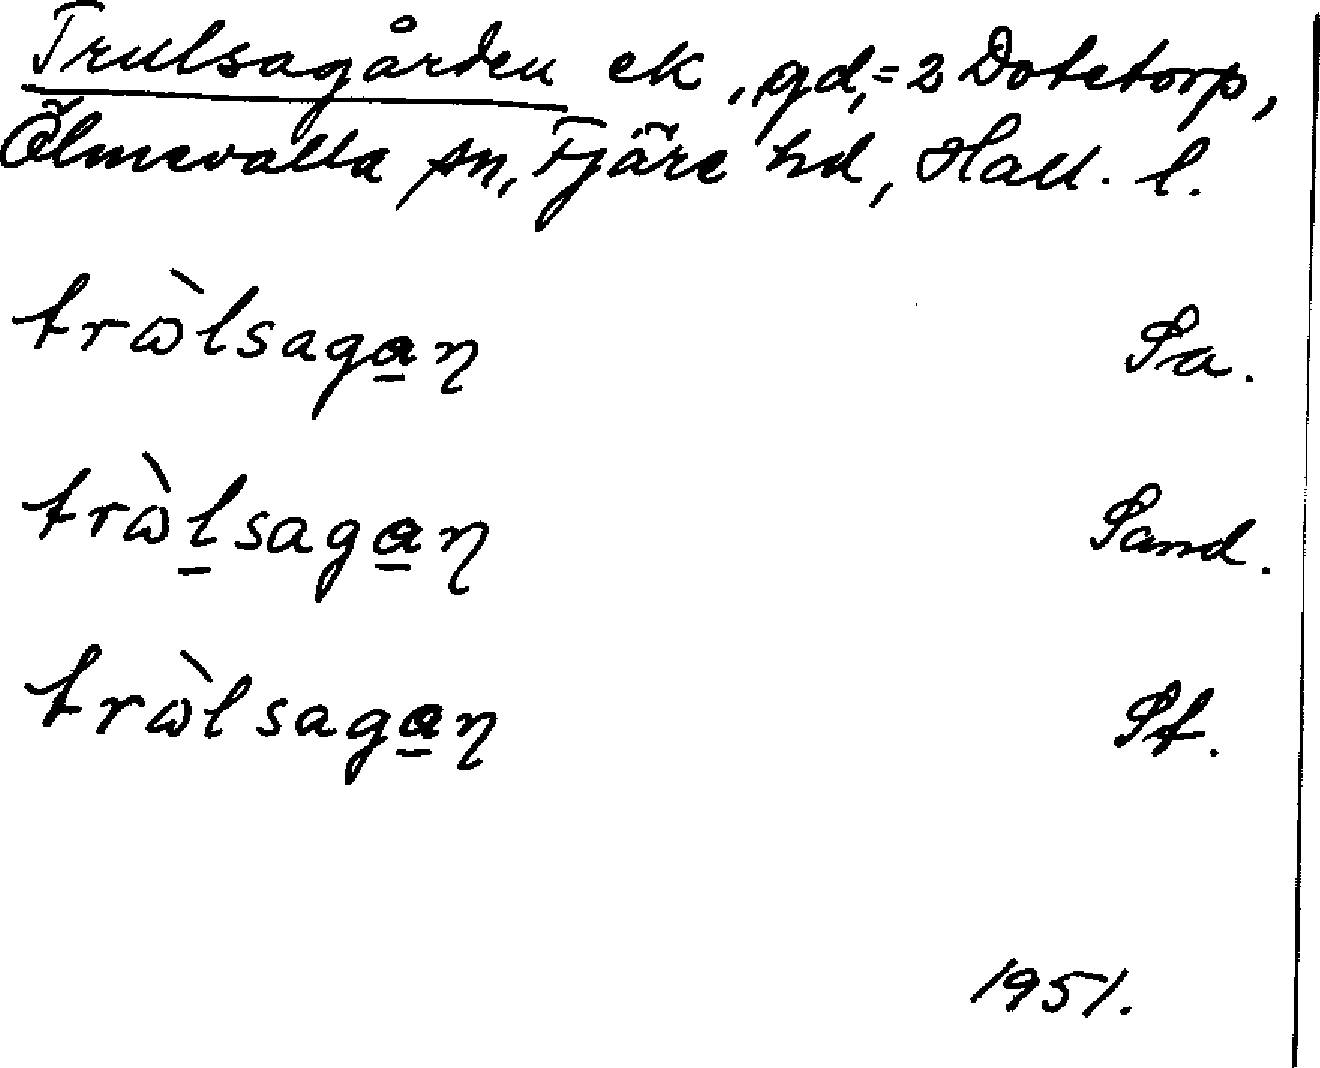 Trulsagården ek, gd, = 2 Dotetorp,
Ölmevalla sn, Fjäre hd, Hall. l.
trὼlsaga̲ŋ Sa.
trὼl̲saga̲ŋ Sand.
trὼlsaga̲ŋ St.
1951.